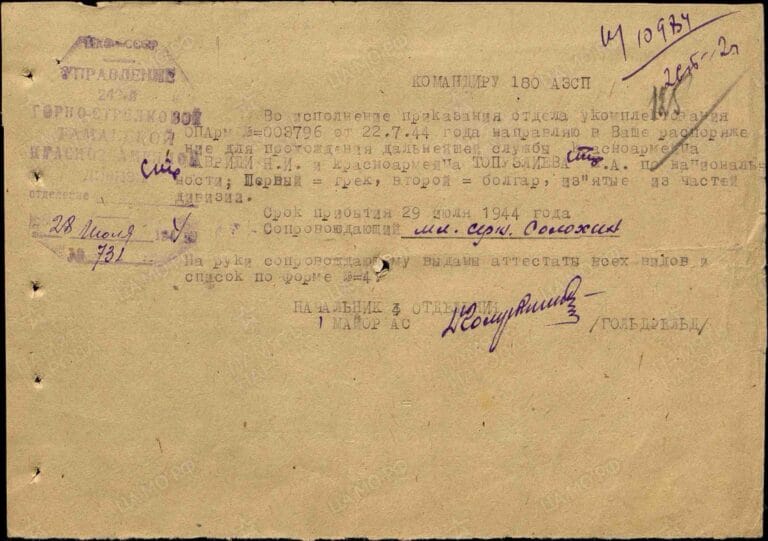 НКО-СССР
УПРАВЛЕНИЕ
242-й
ГОРНО-СТРЕЛКОВОЙ
ТАМАНСКОЙ
КРАСНОЗНАМЕННОЙ
отделение
28 Июля 1944
№ 731
10984
185
КОМАНДИРУ 180 АЗСП
Во исполнение приказания отдела укомплектования
ОПАрм №=008796 от 22.7.44 года направляю в Ваше распоряже
ние для прохождения дальнейшей службы Красноармейца
Н.И. и красноармейца ТОПУЗЛИЕВА .А. по националь-
ности; Первый = грек, второй = болгар, из"ятые из частей
дивизии.
Срок прибытия 29 июля 1944 года
Сопровождающий мл. серж. Солохин
На руки сопровождающему выданы аттестаты всех видов и
список по форме №=4.
НАЧАЛЬНИК 4 ОТДЕЛЕНИЯ
МАЙОР АС /ГОЛЬДФЕЛЬД/
ЦАМО.РФ